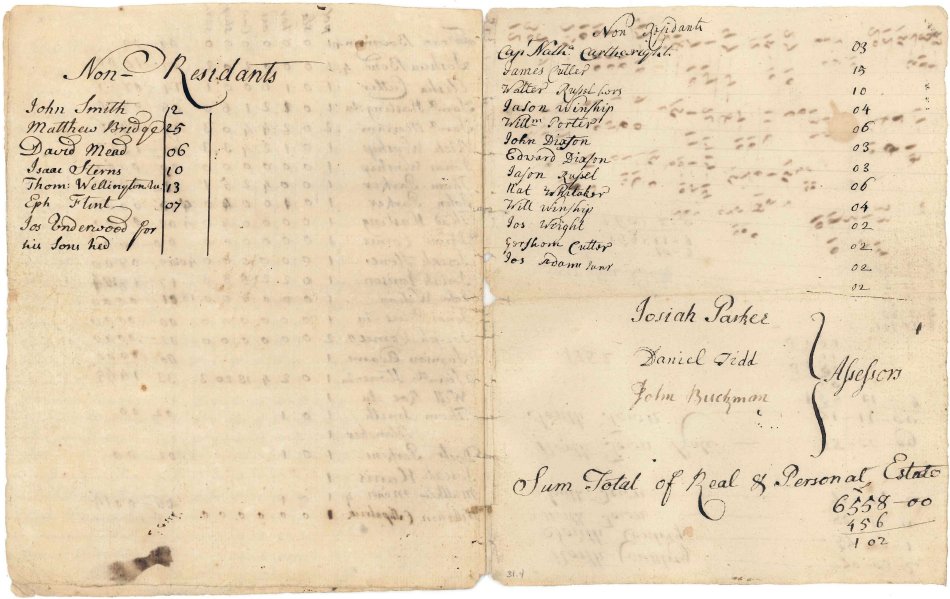 Non- Residants
John Smith 12
Matthew Bridge 25
David Mead 06
Isaac Sterns 10
Thom: Wellington Ju: 13
Eph Flint 07
Jos Enderwood for
his Sons hed
Non Residants
Cap Nath: Carthwright 03
James Cutler 15
Walter Russel hors 10
Jason Winship 04
Willm Porter 06
John Dixson 03
Edward Dixson
Jason Russel 03
Nat Whitaker 06
Will Winship 04
Jos Wright 02
Gershom Cutter 02
Jos Adams Junr 02
02
Josiah Parker
Daniel Tidd
John Buckman
Assessors
Sum Total of Real & Personal Estate
6558-00
456
102
31.4